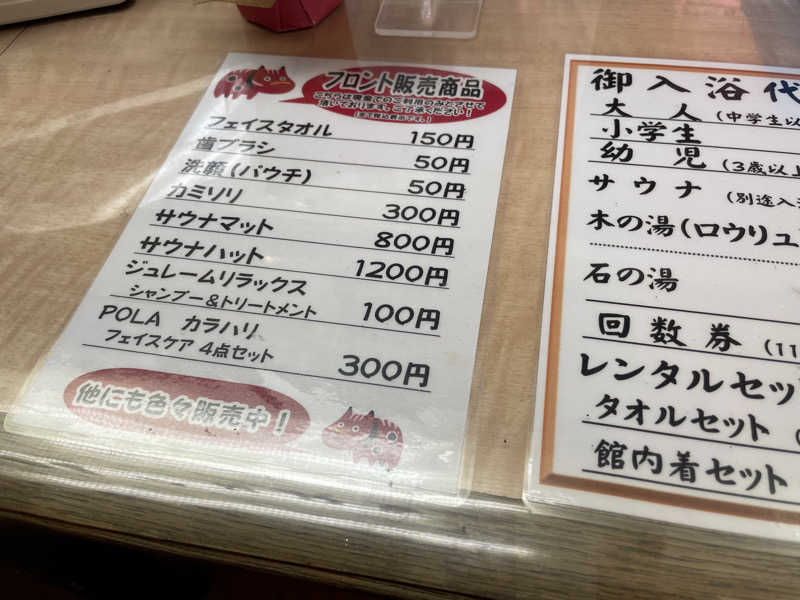 フロント販売商品
こちらは現金でのご利用のみとさせて
頂いております。ご了承ください!
(全て税込表示です。)
フェイスタオル 150円
歯ブラシ 50円
洗顔(パウチ) 50円
カミソリ 300円
サウナマット 800円
サウナハット 1200円
ジュレームリラックス
シャンプー&トリートメント 100円
POLA カラハリ
フェイスケア 4点セット 300円
他にも色々販売中!
御入浴代
大人(中学生以
小学生
幼児(3歳以上
サウナ(別途入
木の湯(ロウリュ
石の湯
回数券(11
レンタルセッ
タオルセット(
館内着セット